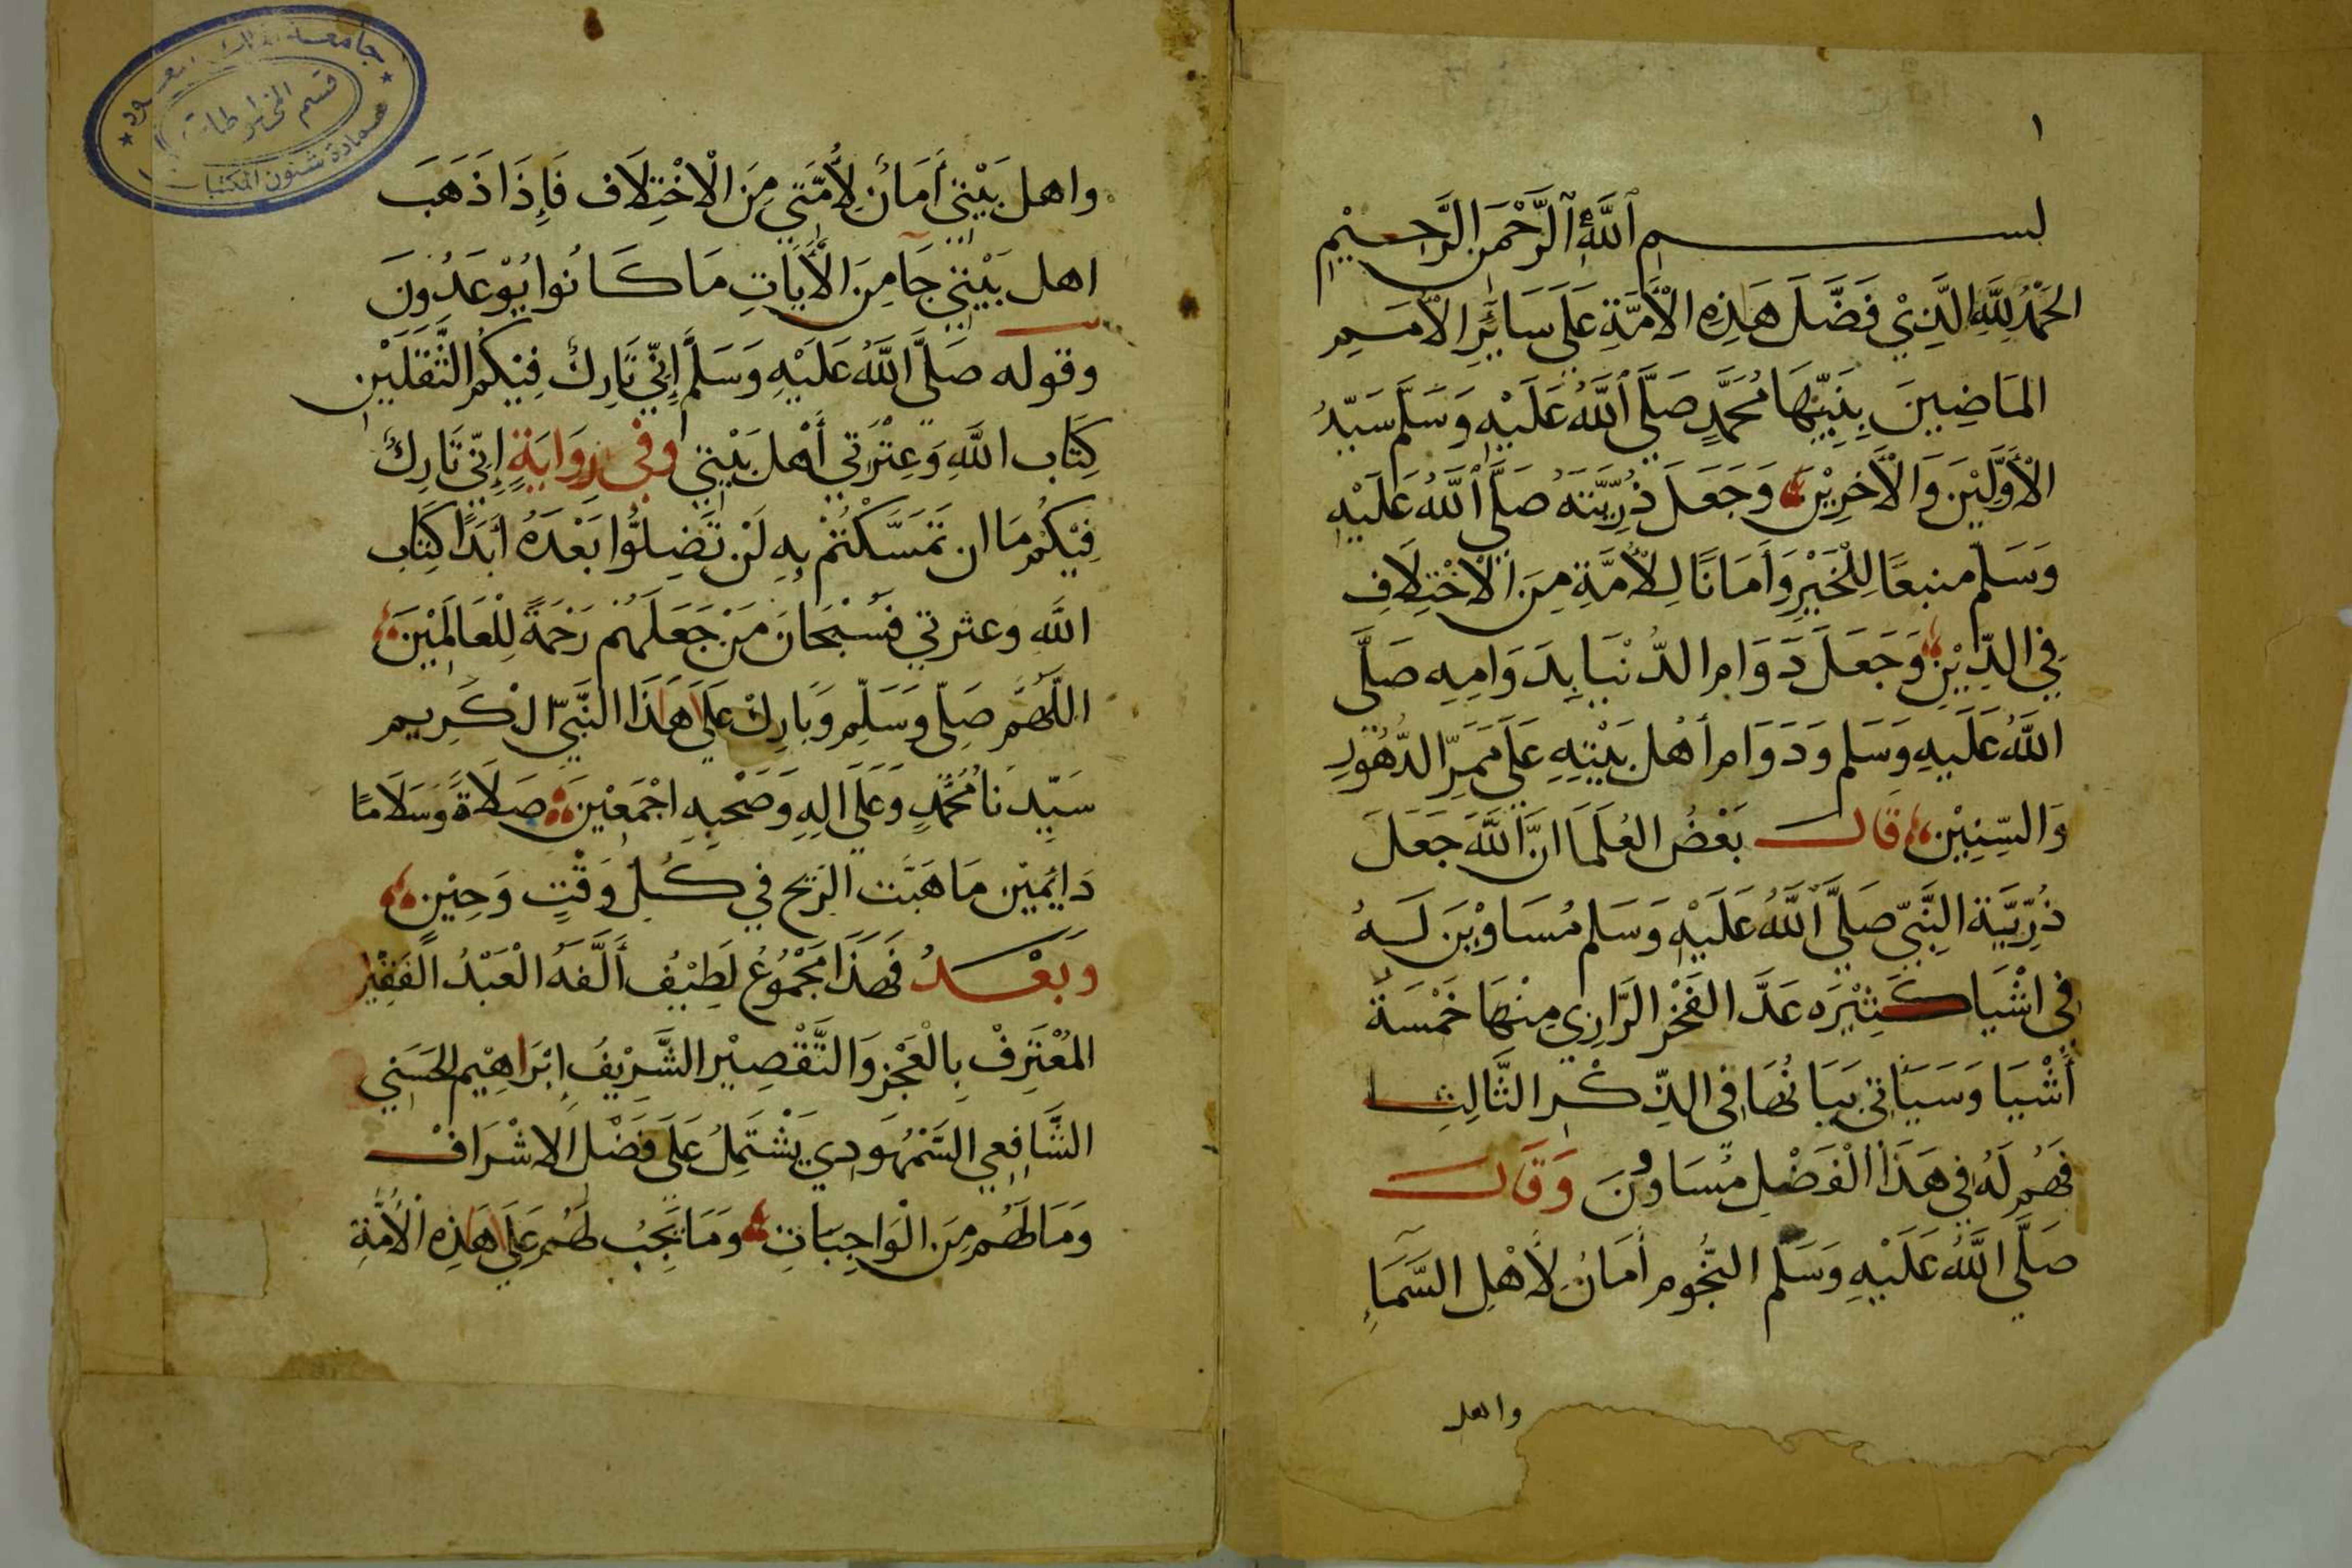 ١
بســـــــم ٱللَّهِ ٱلرَّحْمَنِ الرَّحِيْمِ
الحَمْدُ لِلَّهِ الَّذِيْ فَضَّلَ هَذِهِ الْأُمَّةِ عَلَى سَائِرِ الْأُمَمِ
المَاضِيِينَ بِنَبِيِّهَا مُحَمَّدٍ صَلَّى ٱللَّهُ عَلَيْهِ وَسَلَّم سَيِّدُ
الْأَوَّلِيْنَ وَالْأَخِرِيْنَ وَجَعَلَ ذُرِّيَّتَهُ صَلَّى ٱللَّهُ عَلَيْهِ
وَسَلَّم منبعًا لِلْخَيْرِ وَأَمَانًا لِلْأُمَّةِ مِنَ الْاخْتِلَافِ
فِي الدِّيْنِ وَجَعَلَ دَوَامِ الدُّنْيَا بِدَوَامِهِ صَلَّى
اللَّهُ عَلَيهِ وَسَلم وَدَوَامِ أَهْلِ بَيْتِهِ عَلَى مَمَرِّ الدُّهُوْرِ
وَالسِّنِيْنِ قَالَ بَعْضُ العُلَمَا انَّ اللَّهَ جَعَلَ
ذُرِّيَّة النَّبِيّ صَلَّى اللَّهُ عَلَيْهِ وَسَلم مُسَاوِيْنَ لَهُ
فِي اشْيَا كَثِيْرَه عَدَّ الفَخْرِ الرَّازِي مِنْهَا خَمْسَةَ
أَشْيَا وَسَيَأتي بَيَانُهَا فِي الذِّكْرِ الثَّالِثِ
فَهُم لَهُ فِي هَذَا الْفَضْلِ مُسَاوونَ وَقَالَ
صَلَّى اللَّهُ عَلَيْهِ وَسَلَّم النُّجُوم أَمَانُ لِأَهْلِ السَّمَاءِ
واهل
واهل بَيْتِي أَمَانٌ لِأُمَّتِي مِنَ الْاخْتِلَاف فَإِذَا ذَهَبَ
اهل بَيْتِي جَا مِنَ الْأَيَاتِ مَا كَانُوا يُوْعَدُونَ
وقوله صَلَّى اللَّهُ عَلَيْهِ وَسَلَّم إِنِّي تَارِكٌ فِيْكُمُ الثَّقَلَيْنِ
كِتَاب اللَّهِ وَعِتْرَتِي أَهْلَ بَيْتِي وَفِي رِوَايَةٍ إِنِّي تَارِكٌ
فِيْكُم مَا ان تَمَسَّكْتُمْ بِهِ لَنْ تَضِلُّوا بَعْدَهُ أَبَدًا كِتَاب
اللَّه وعترتي فَسُبْحَانَ مَنْ جَعَلَهُمْ رَحْمَةً لِلْعَالَمِيْنَ
اللَّهُمَّ صَلِّي وَسَلِّم وَبَارِكْ عَلَى هَذَا النَّبِيّ الْكَرِيم
سَيِّدِنَا مُحَمَّدٍ وَعَلَى الِهِ وَصَحْبِهِ اجْمَعِيْنَ صَلَاةً وَسَلَامًا
دَايِمَيْن مَا هَبَّت الرِّيْح فِي كُلِّ وَقْتٍ وَحِيْنٍ
وَبَعْـــدُ فَهَذَا مَجْمُوْعُ لَطِيْفُ أَلَّفَهُ الْعَبْدُ الْفَقِيْر
المُعْتَرِفْ بِالْعَجْزِ وَالتَّقْصِيْرِ الشَّرِيْفُ إِبْرَاهِيْم الحَسَنِي
الشَّافِعِي السَّمْهَودِي يَشْتَمِلُ عَلَى فَضْل الاشْرَافْ
وَمَا لَهُم مِنَ الْوَاجِبَاتِ وَمَا يَجِبُ لَهُم عَلَى هَذِهِ الْأُمَّةِ
جامعة الملك سعود
قسم المخطوطات
عمادة شئون المكتبات